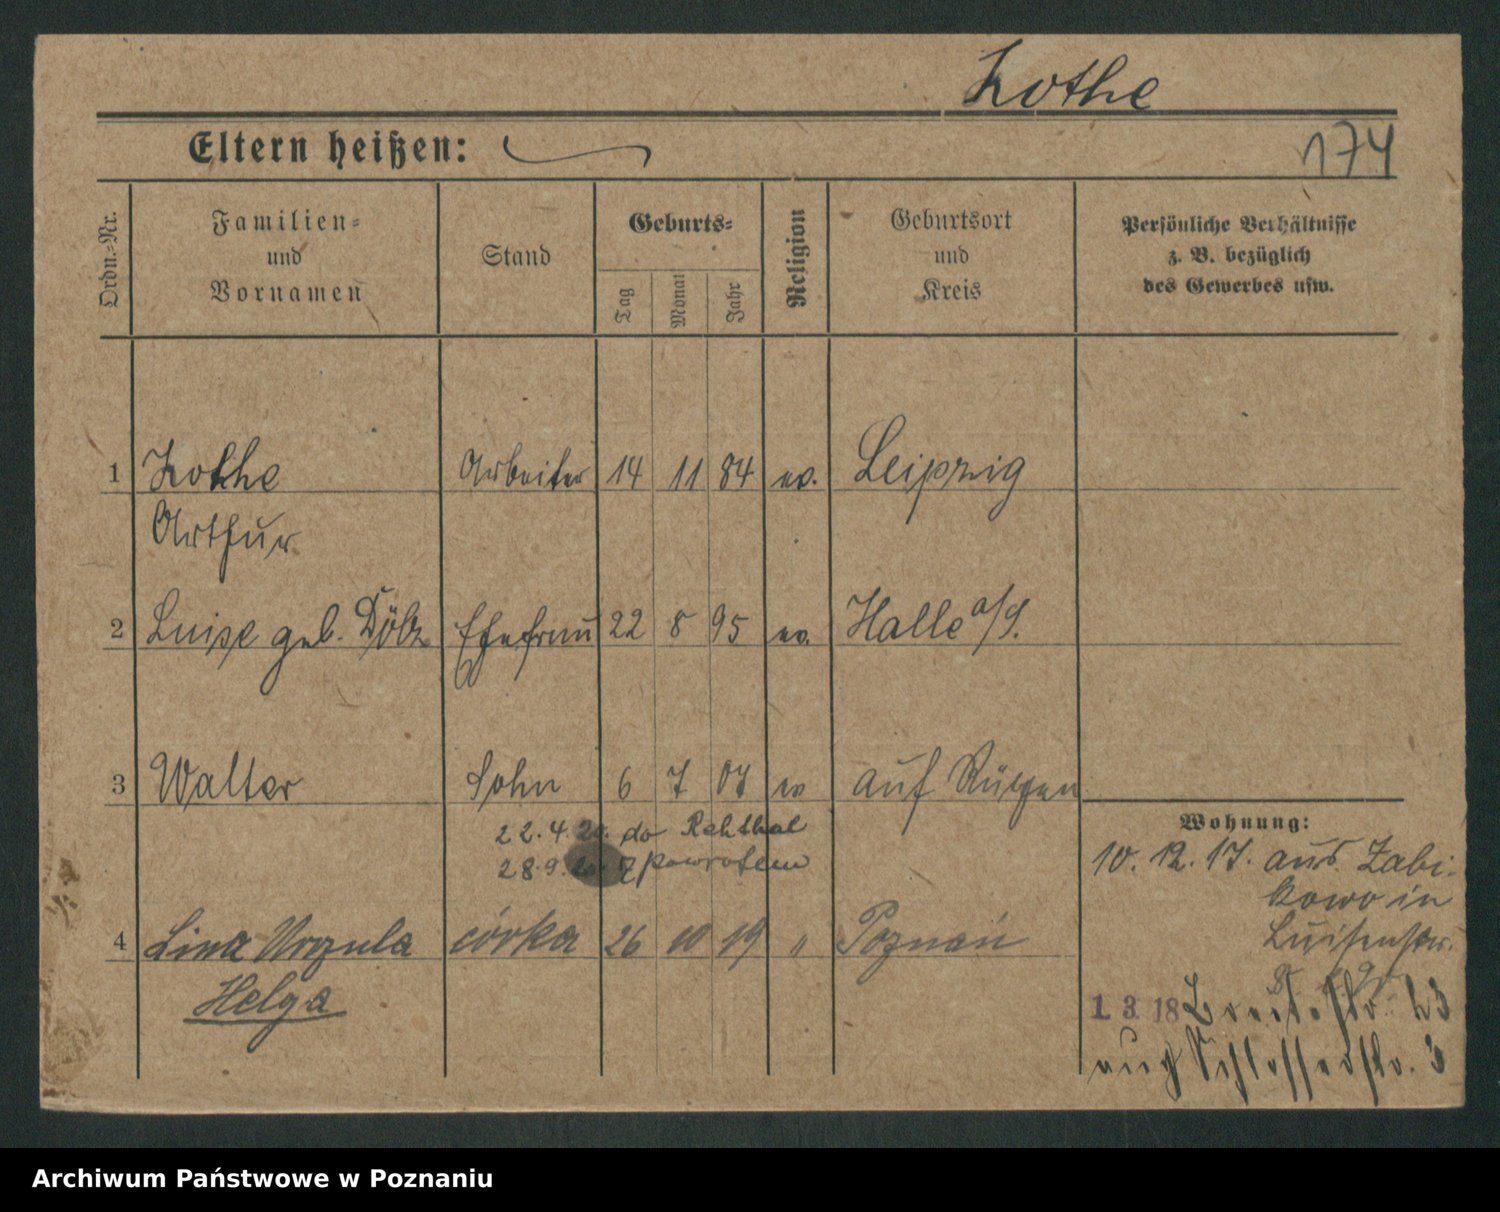 Kothe
Eltern heißen:
174
Ordn.-Nr.
Familien-
und
Vornamen
Stand
Geburts-
Tag
Monat
Jahr
Religion
Geburtsort
und
Kreis
Persönliche Verhältnisse
z. B. bezüglich
des Gewerbes usw.
1 Kothe Arbeiter 14 11 84 ev. Leipzig
Arthur
2 Luise geb. Dölz Ehefrau 22 8 95 ev. Halle a/S.
3 Walter Sohn 6 7 07 ev auf Rügen
22.4.20. do Rehthal
28.9. z powrotem
Wohnung:
10. 12. 17. aus Zabi-
kowo in
Luisenstr.
4 Lina Urszula córka 26 10 19 " Poznań
Helga
1. 3. 18 Breitestr. 23
aug Schlosserstr. 3
Archiwum Państwowe w Poznaniu